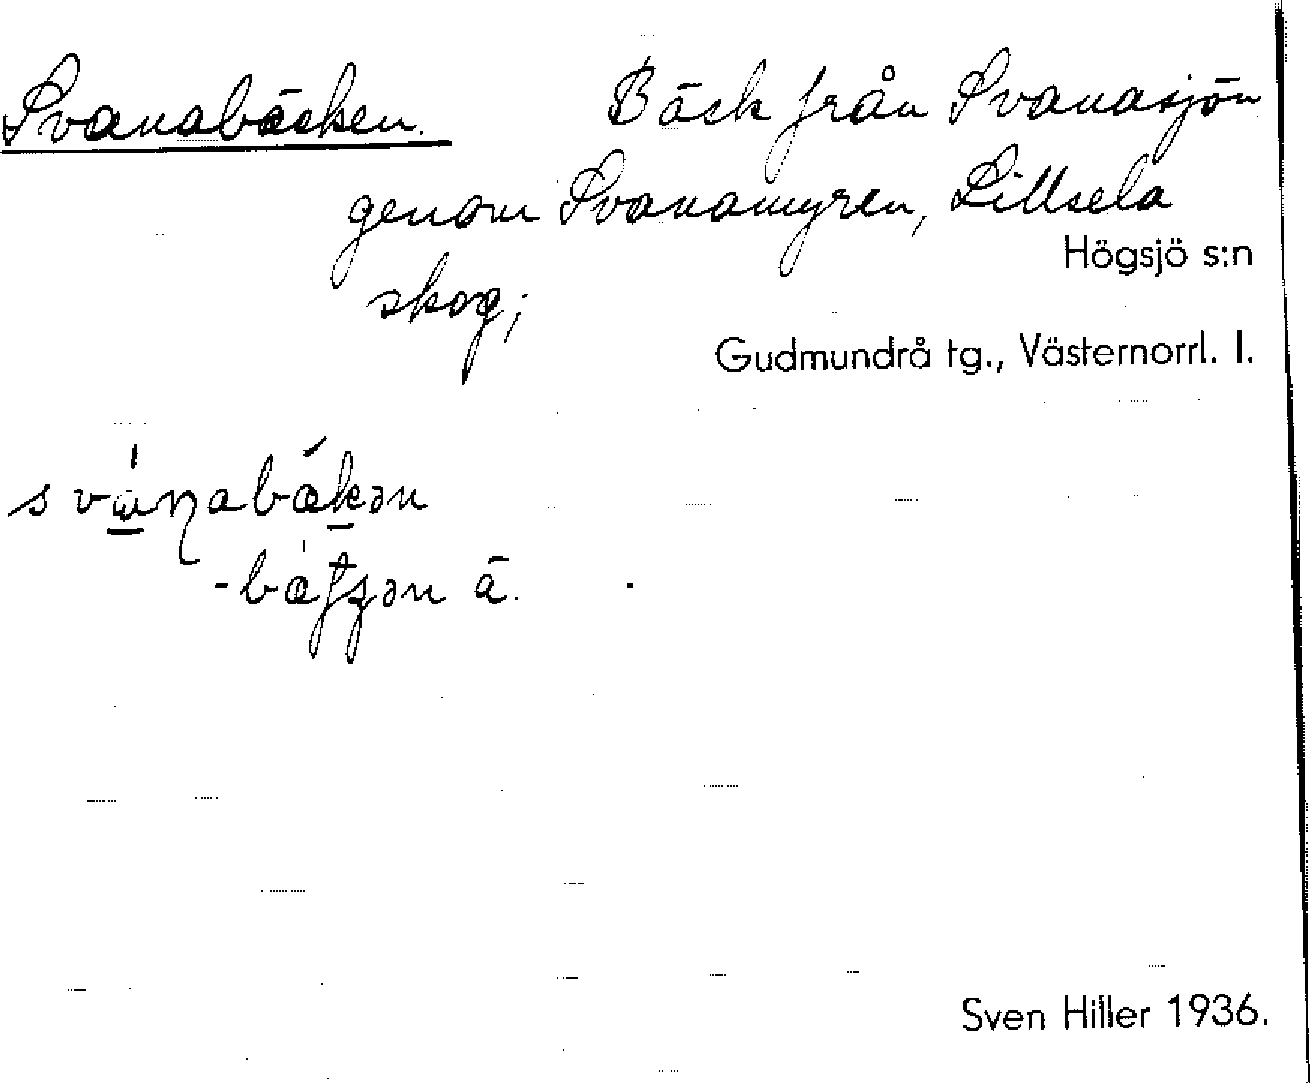 Svanabäcken. Bäck från Svanasjön
genom Svanamyren, Lillsela
Högsjö s:n
skog;
Gudmundrå tg., Västernorrl. l.
svánabäkən
-bätʂən ä.
Sven Hiller 1936.